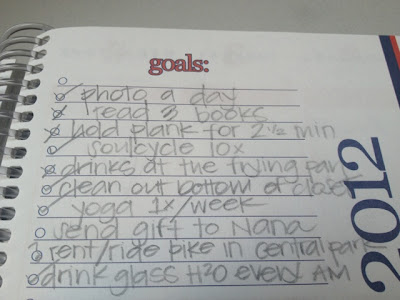 goals:
photo a day
read 3 books
hold plank for 2 1/2 min
soulcycle 10x
drinks at the frying pan
clean out bottom of closet
yoga 1x/week
send gift to Nana
rent/ride bike in central park
drink glass H2O every AM
2012